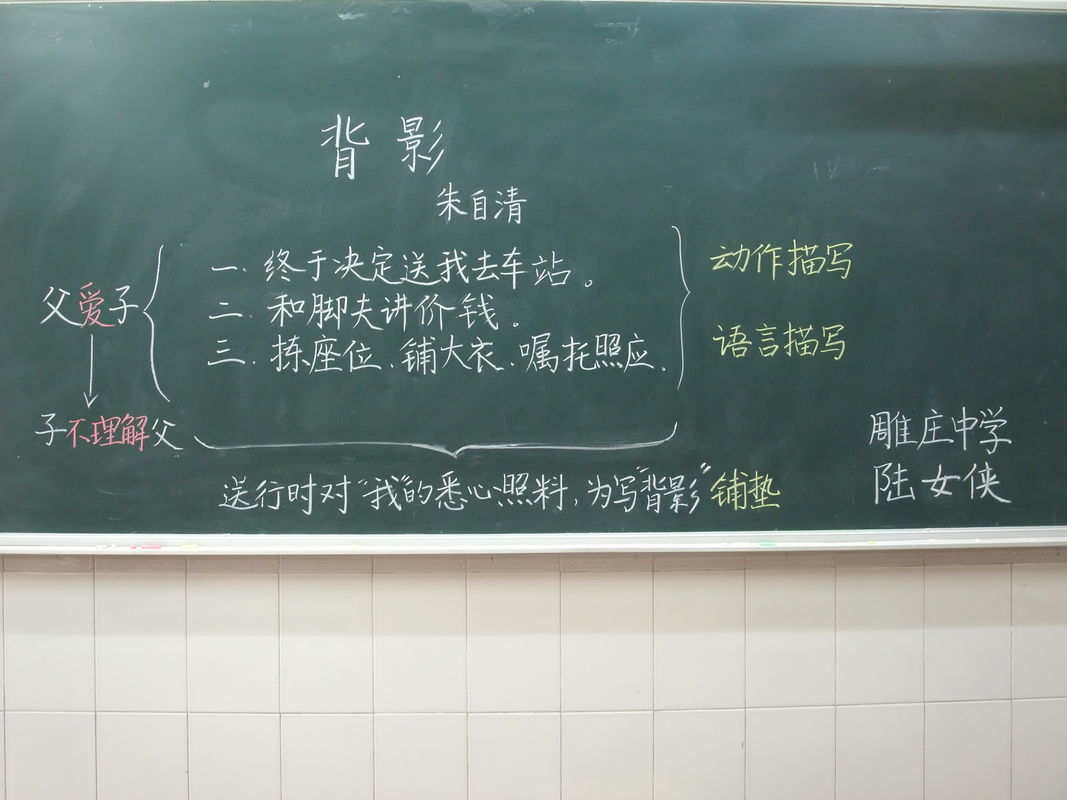 背影
朱自清
父爱子
一.终于决定送我去车站。
二.和脚夫讲价钱。
三.拣座位、铺大衣、嘱托照应.
动作描写
语言描写
子不理解父
送行时对“我”的悉心照料,为写“背影”铺垫
雕庄中学
陆女侠